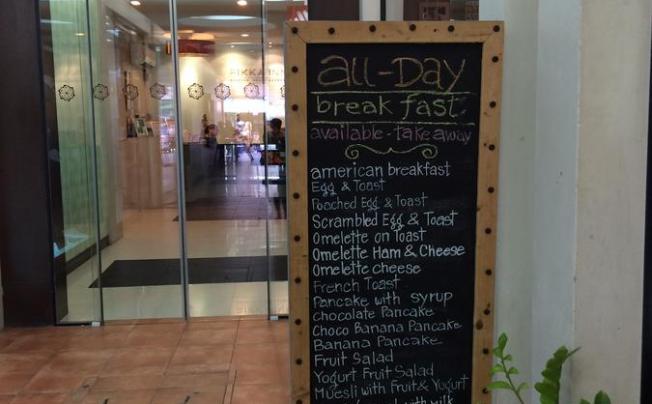 RIKKA INN
all-Day
break fast
available - take away
american breakfast
Egg & Toast
Poached Egg & Toast
Scrambled Egg & Toast
Omelette on Toast
Omelette Ham & Cheese
Omelette cheese
French Toast
Pancake with syrup
chocolate Pancake
Choco Banana Pancake
Banana Pancake
Fruit Salad
Yogurt Fruit Salad
Muesli with Fruit & Yogurt
with milk